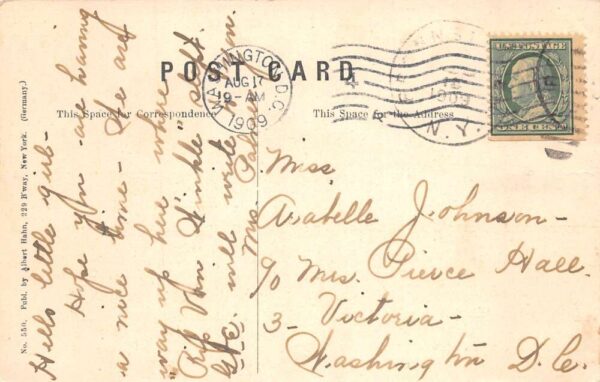 POST CARD
This Space for Correspondence
This Space for the Address
No. 550. Publ. by Albert Hahn, 229 B'way, New York. (Germany.)
WASHINGTON, D.C.
AUG 17
9-AM
1909
1909
N.Y.
Hello little girl-
Hope you are having
a nice time- We are
way up here where
"Rip Van Winkle" slept.
will write soon.
Mrs.
Miss
Arabelle Johnson-
c/o Mrs. Pierce Hall.
3- Victoria-
Washington D.C.
U.S. POSTAGE
ONE CENT